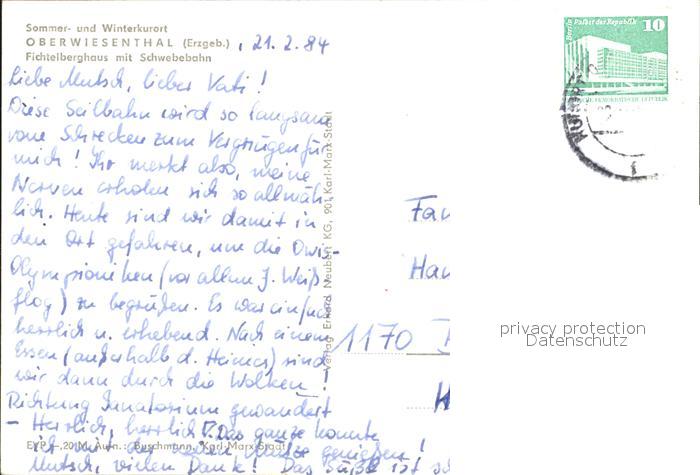 Sommer- und Winterkurort
OBERWIESENTHAL (Erzgeb.), 21.2.84
Fichtelberghaus mit Schwebebahn
Liebe Mutsch, lieber Vati!
Diese Seilbahn wird so langsam
vom Schrecken zum Vergnügen für
mich! Ihr merkt also, meine
Nerven erholen sich so allmäh-
lich. Heute sind wir damit in
den Ort gefahren, um die
Olympioniken (vor allem J. Weiß-
flog) zu begrüßen. Es war einfach
herrlich u. erhebend. Nach einem
Essen (außerhalb d. Heimes) sind
wir dann durch die Wolken
Richtung Sanatorium gewandert
- Herrlich, herrlich! Das ganze konnte
ich mit der genießen!
Mutsch, vielen Dank! Das Süße ist
EVP -,20 M Aufn.: Buschmann, Karl-Marx-Stadt
Verlag Erhard Neubert KG, 901 Karl-Marx-Stadt
Berlin Palast der Republik 10
DEUTSCHE DEMOKRATISCHE REPUBLIK
Fam
Hau
1170
privacy protection
Datenschutz